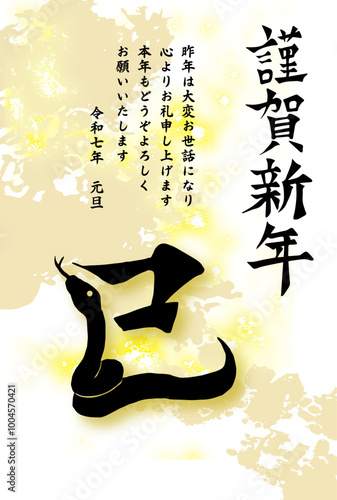 謹賀新年
昨年は大変お世話になり
心よりお礼申し上げます
本年もどうぞよろしく
お願いいたします
令和七年　元旦
巳
Adobe Stock | #1004570421